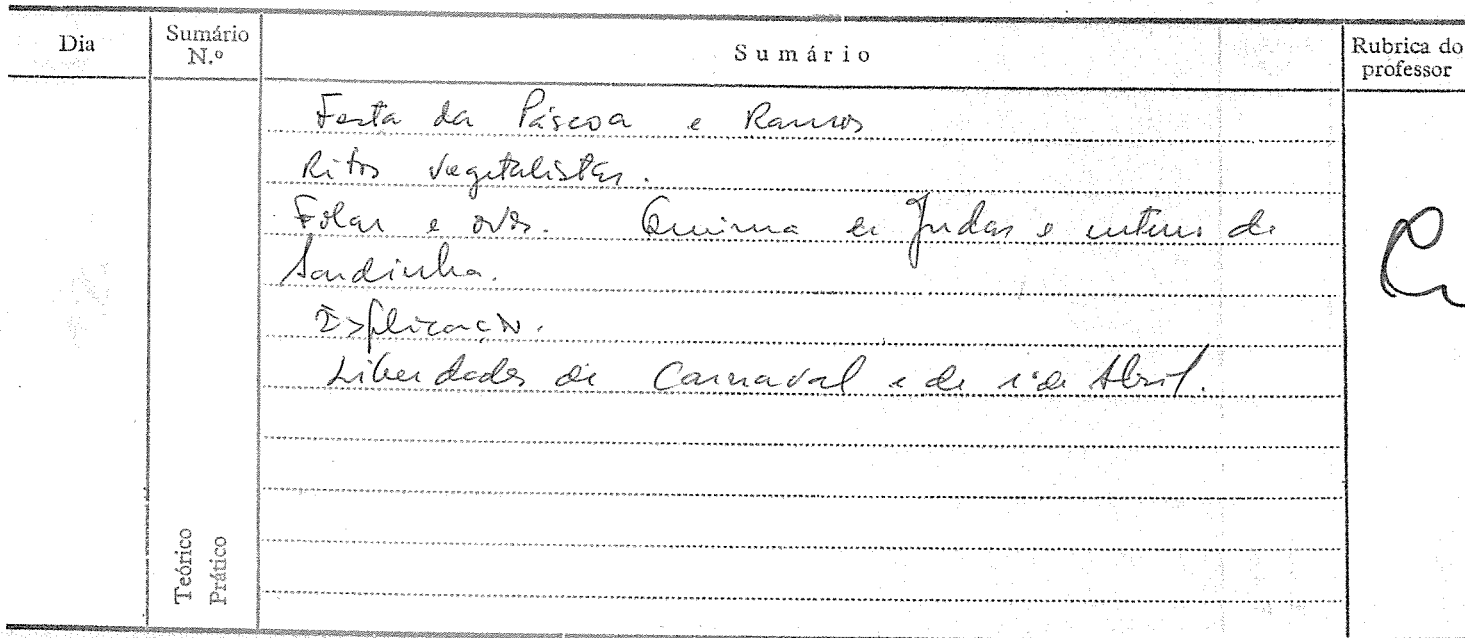 Dia
Sumário
N.º
Sumário
Rubrica do
professor
Festa da Páscoa e Ramos
Ritos vegetalistas.
Folar e ovos. Queima de Judas e enterro da
Sardinha.
Explicação.
Liberdades de Carnaval e de 1º de Abril.
Teórico
Prático